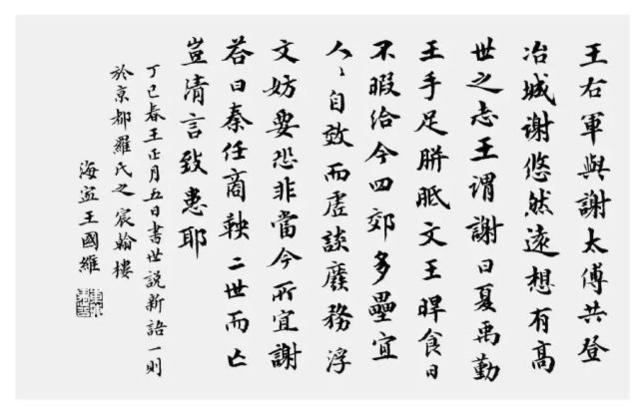 王右軍與謝太傅共登
冶城謝悠然遠想有高
世之志王謂謝曰夏禹勤
王手足胼胝文王旰食日
不暇給今四郊多壘宜
人〻自效而虛談廢務浮
文妨要恐非當今所宜謝
荅曰秦任商鞅二世而亡
豈清言致患耶
丁巳春王正月五日書世說新語一則
於京都羅氏之宸翰樓
海寧王國維